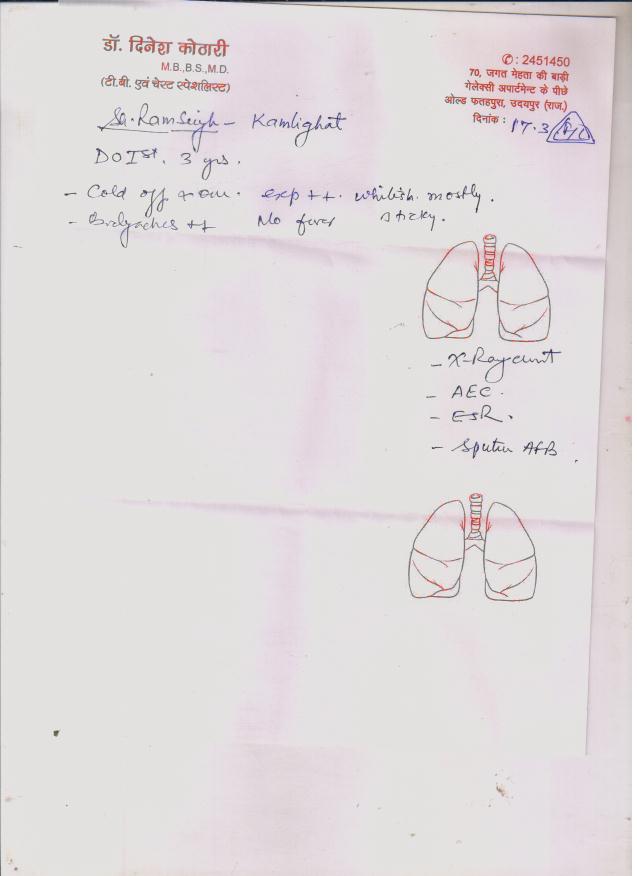 डॉ. दिनेश कोठारी
M.B.,B.S.,M.D.
(टी.बी. एवं चेस्ट स्पेशलिस्ट)
✆: 2451450
70, जगत मेहता की बाड़ी
गेलेक्सी अपार्टमेन्ट के पीछे
ओल्ड फतहपुरा, उदयपुर (राज.)
दिनांक : 17.3
Ramsingh – Kamlighat
3 yrs.
- Cold off + on. exp ++. whitish mostly.
- Bodyaches ++ No fever sticky.
- X-Ray chest
- AEC.
- ESR.
- Sputum AFB.